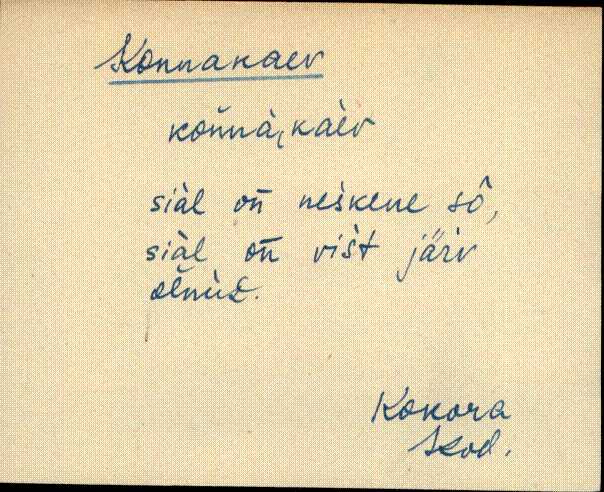 Konnakaev
kon̆nà, kàev
siàl on̄ nèskene sô,
siàl on̄ vis̀t järv
ol̆nùD.
Kokora
Kod.